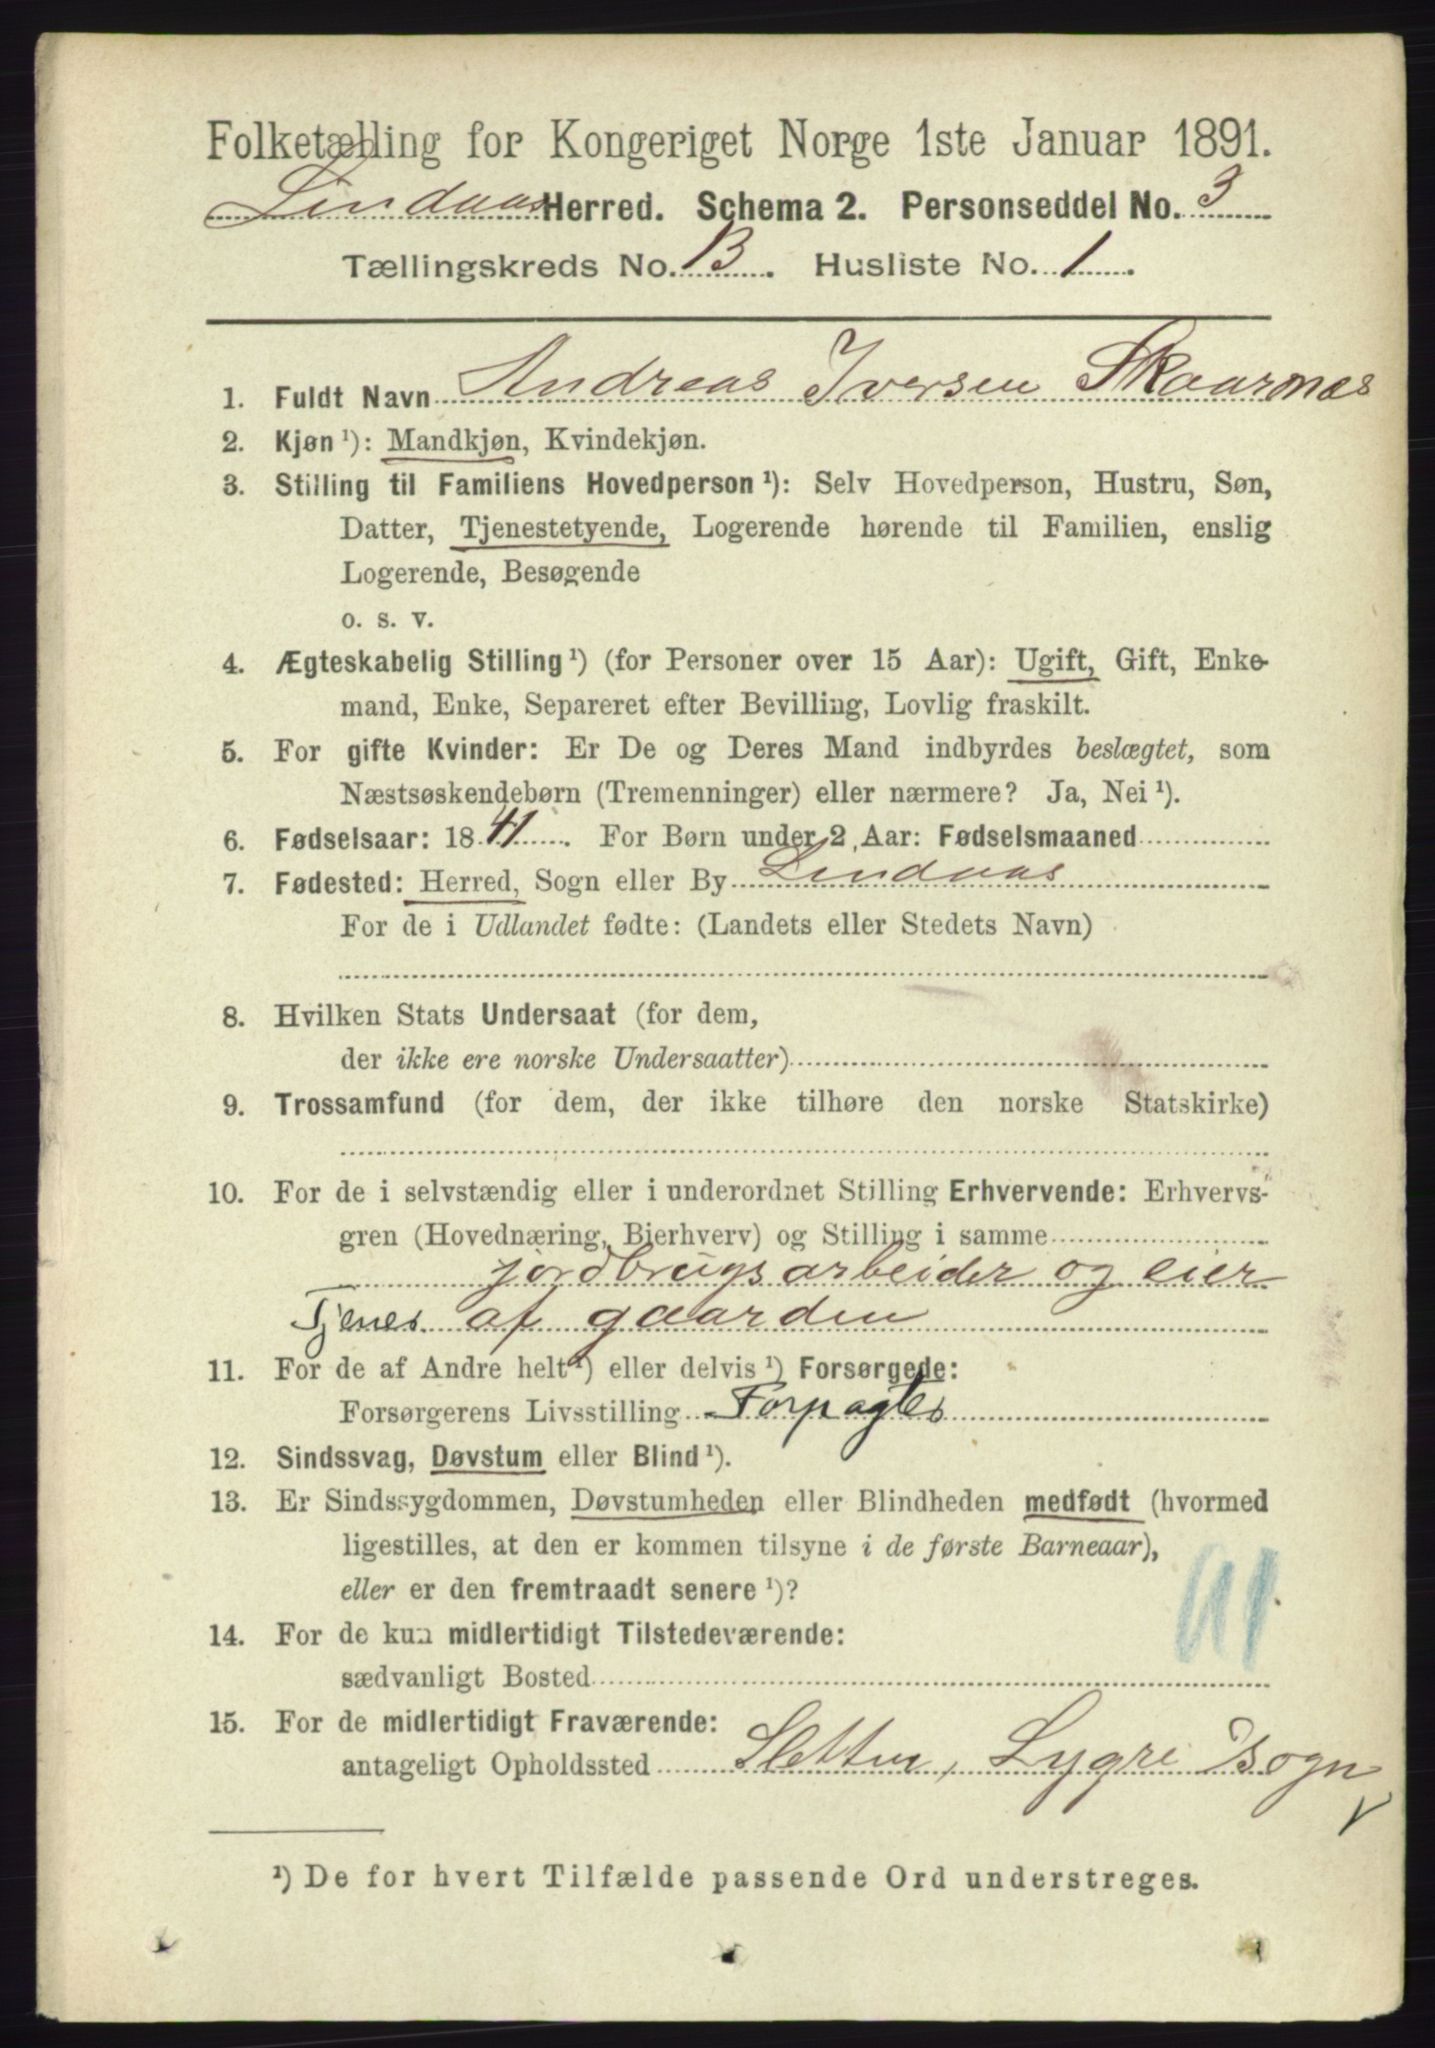 Folketælling for Kongeriget Norge 1ste Januar 1891.
Lindaas Herred. Schema 2. Personseddel No. 3
Tællingskreds No. B. Husliste No. 1.
1. Fuldt Navn Andreas Iversen Skaarnæs
2. Kjøn ¹): Mandkjøn, Kvindekjøn.
3. Stilling til Familiens Hovedperson ¹): Selv Hovedperson, Hustru, Søn,
Datter, Tjenestetyende, Logerende hørende til Familien, enslig
Logerende, Besøgende
o. s. v.
4. Ægteskabelig Stilling ¹) (for Personer over 15 Aar): Ugift, Gift, Enke-
mand, Enke, Separeret efter Bevilling, Lovlig fraskilt.
5. For gifte Kvinder: Er De og Deres Mand indbyrdes beslægtet, som
Næstsøskendebørn (Tremenninger) eller nærmere? Ja, Nei ¹).
6. Fødselsaar: 1841. For Børn under 2 Aar: Fødselsmaaned
7. Fødested: Herred, Sogn eller By Lindaas
For de i Udlandet fødte: (Landets eller Stedets Navn)
8. Hvilken Stats Undersaat (for dem,
der ikke ere norske Undersaatter)
9. Trossamfund (for dem, der ikke tilhøre den norske Statskirke)
10. For de i selvstændig eller i underordnet Stilling Erhvervende: Erhvervs-
gren (Hovednæring, Bierhverv) og Stilling i samme
jordbrugsarbeider og eier
Tjenes af gaarden
11. For de af Andre helt ¹) eller delvis ¹) Forsørgede:
Forsørgerens Livsstilling Forpagter
12. Sindssvag, Døvstum eller Blind ¹).
13. Er Sindssygdommen, Døvstumheden eller Blindheden medfødt (hvormed
ligestilles, at den er kommen tilsyne i de første Barneaar),
eller er den fremtraadt senere ¹)?
14. For de kun midlertidigt Tilstedeværende:
sædvanligt Bosted
15. For de midlertidigt Fraværende:
antageligt Opholdssted Lygre Sogn
¹) De for hvert Tilfælde passende Ord understreges.